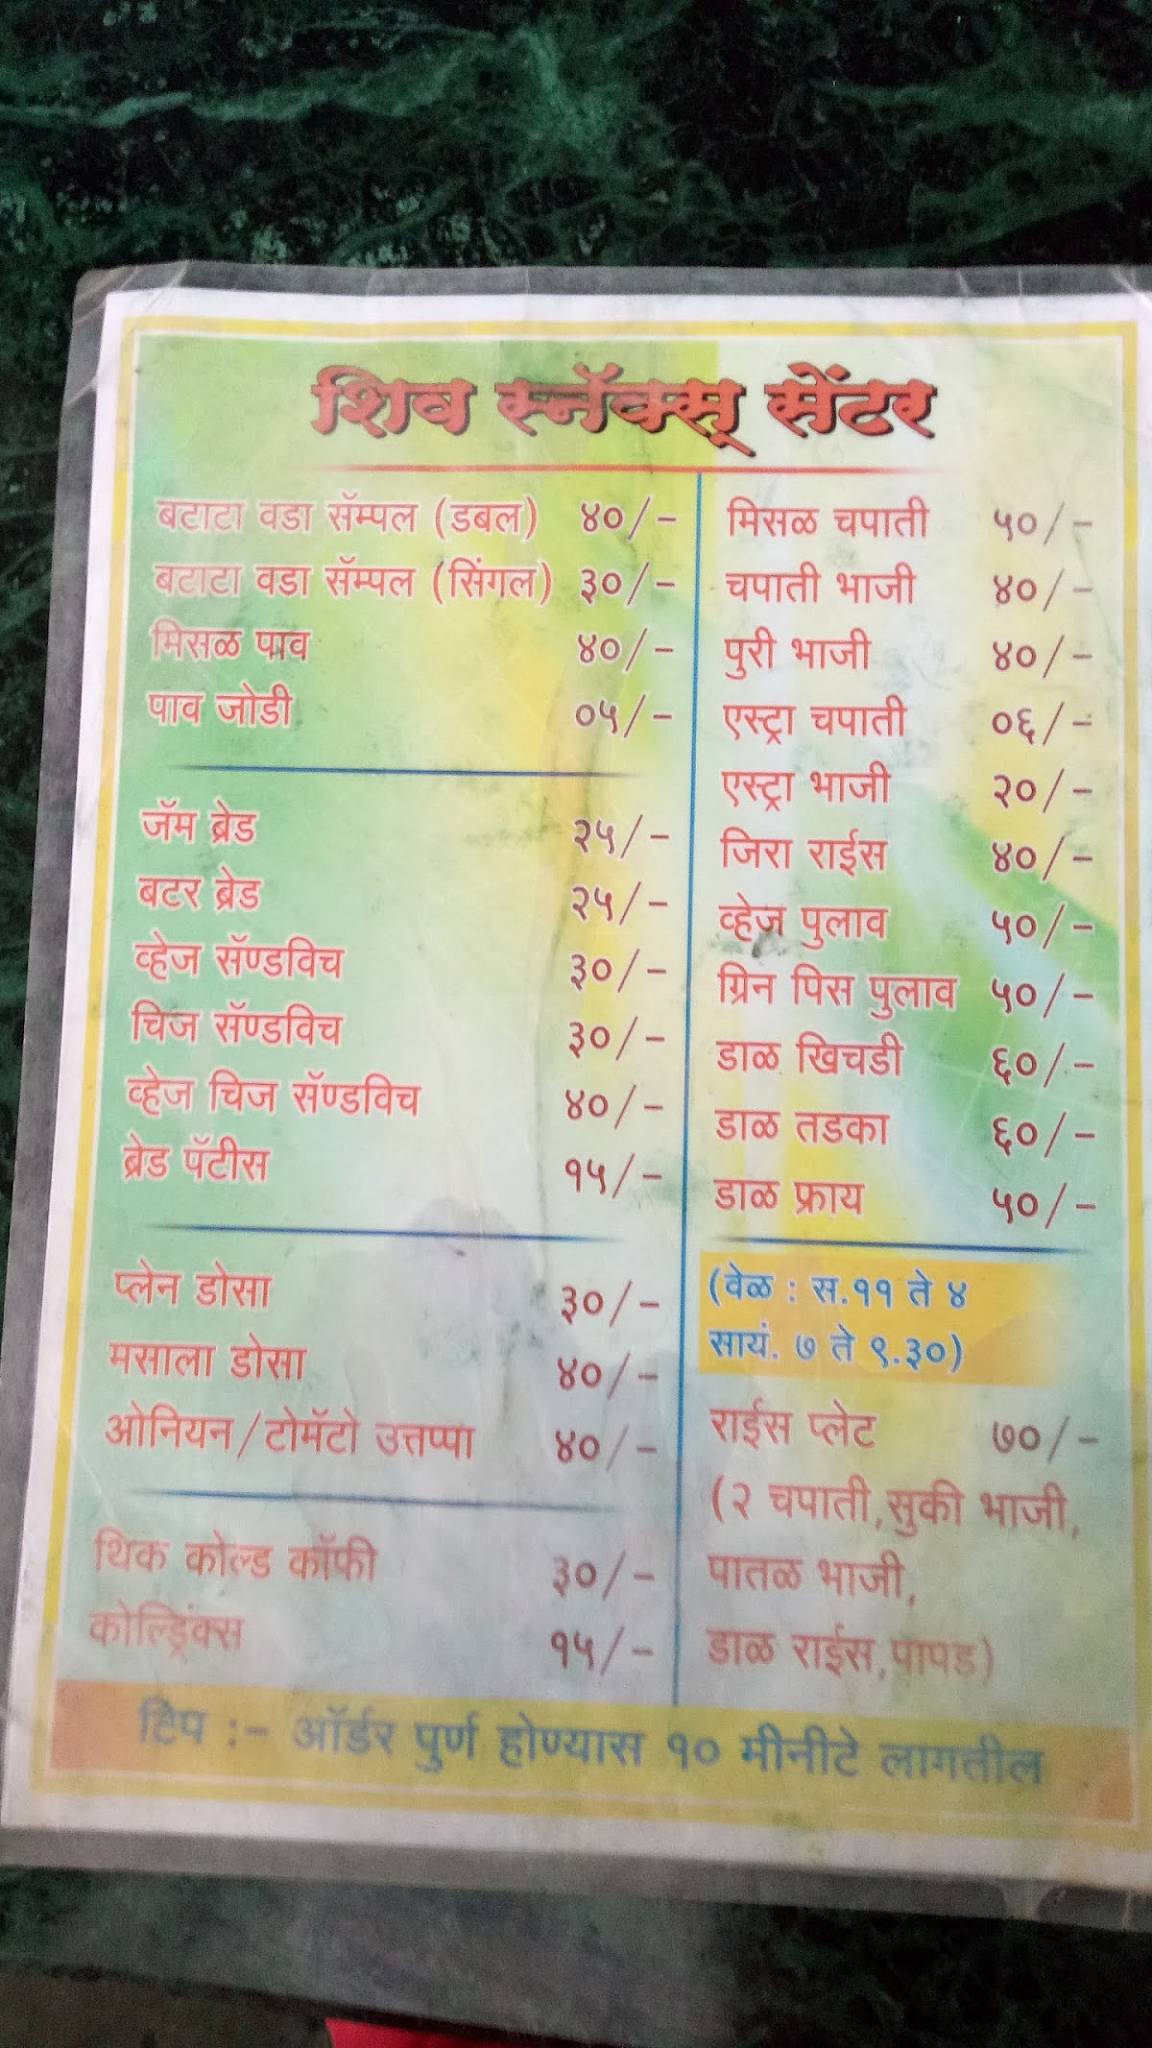 शिव स्नॅक्स् सेंटर
बटाटा वडा सॅम्पल (डबल) ४०/-
बटाटा वडा सॅम्पल (सिंगल) ३०/-
मिसळ पाव ४०/-
पाव जोडी ०५/-
जॅम ब्रेड २५/-
बटर ब्रेड २५/-
व्हेज सॅण्डविच ३०/-
चिज सॅण्डविच ३०/-
व्हेज चिज सॅण्डविच ४०/-
ब्रेड पॅटीस १५/-
प्लेन डोसा ३०/-
मसाला डोसा ४०/-
ओनियन/टोमॅटो उत्तप्पा ४०/-
थिक कोल्ड कॉफी ३०/-
कोल्ड्रिंक्स १५/-
मिसळ चपाती ५०/-
चपाती भाजी ४०/-
पुरी भाजी ४०/-
एस्ट्रा चपाती ०६/-
एस्ट्रा भाजी २०/-
जिरा राईस ४०/-
व्हेज पुलाव ५०/-
ग्रिन पिस पुलाव ५०/-
डाळ खिचडी ६०/-
डाळ तडका ६०/-
डाळ फ्राय ५०/-
(वेळ : स.११ ते ४
सायं. ७ ते ९.३०)
राईस प्लेट ७०/-
(२ चपाती,सुकी भाजी,
पातळ भाजी,
डाळ राईस,पापड)
टिप :- ऑर्डर पुर्ण होण्यास १० मीनीटे लागतील